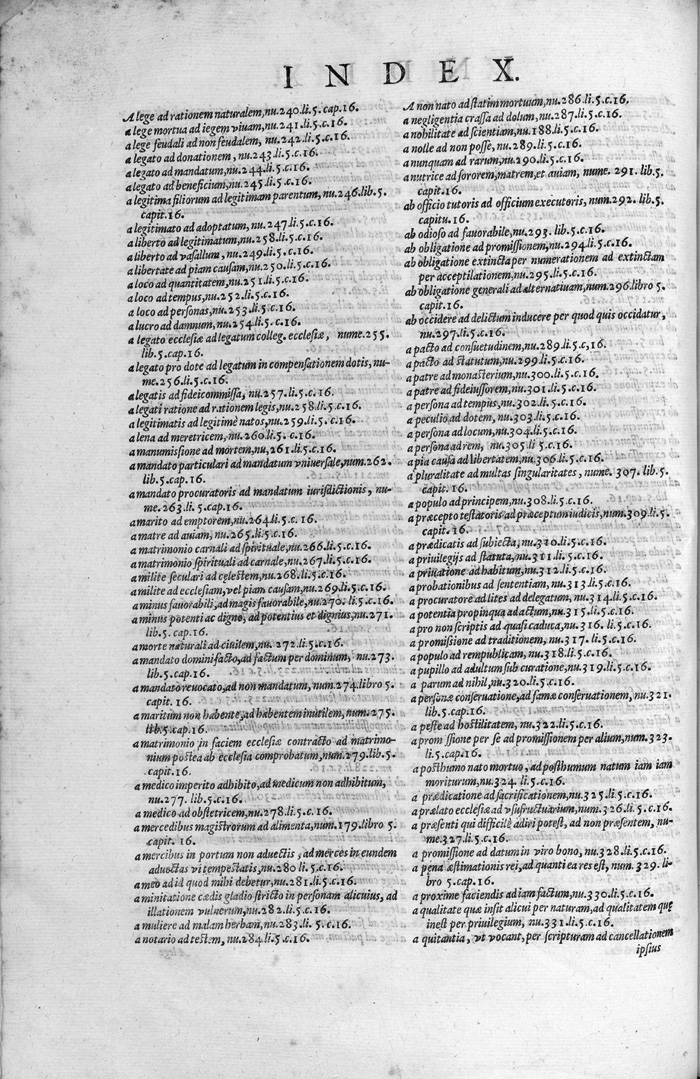 INDEX.
A lege ad rationem naturalem, nu.240.li.5.cap.16.
a lege mortua ad legem viuam, nu.241.li.5.c.16.
a lege feudali ad non feudalem, nu.242.li.5.c.16.
a legato ad donationem, nu.243.li.5.c.16.
a legato ad mandatum, nu.244.li.5.c.16.
a legato ad beneficium, nu.245.li.5.c.16.
a legitima filiorum ad legitimam parentum, nu.246.lib.5.
capit.16.
a legitimato ad adoptatum, nu.247.li.5.c.16.
a liberto ad legitimatum, nu.258.li.5.c.16.
a liberto ad vasallum, nu.249.li.5.c.16.
a libertate ad piam causam, nu.250.li.5.c.16.
a loco ad quantitatem, nu.251.li.5.c.16.
a loco ad tempus, nu.252.li.5.c.16.
a loco ad personas, nu.253.li.5.c.16.
a lucro ad damnum, nu.254.li.5.c.16.
a legato ecclesiæ ad legatum colleg. ecclesiæ, nume.255.
lib.5.cap.16.
a legato pro dote ad legatum in compensationem dotis, nu-
me.256.li.5.c.16.
a legatis ad fideicommissa, nu.257.li.5.c.16.
a legati ratione ad rationem legis, nu.258.li.5.c.16.
a legitimatis ad legitimè natos, nu.259.li.5.c.16.
a lena ad meretricem, nu.260.li.5.c.16.
a manumissione ad mortem, nu.261.li.5.c.16.
a mandato particulari ad mandatum vniuersale, num.262.
lib.5.cap.16.
a mandato procuratoris ad mandatum iurisdictionis, nu-
me.263.li.5.cap.16.
a marito ad emptorem, nu.264.li.5.c.16.
a matre ad auiam, nu.265.li.5.c.16.
a matrimonio carnali ad spirituale, nu.266.li.5.c.16.
a matrimonio spirituali ad carnale, nu.267.li.5.c.16.
a milite seculari ad celestem, nu.268.li.5.c.16.
a milite ad ecclesiam, vel piam causam, nu.269.li.5.c.16.
a minus fauorabili, ad magis fauorabile, nu.270.li.5.c.16.
a minus potenti ac digno, ad potentius et dignius, nu.271.
lib.5.cap.16.
a morte naturali ad ciuilem, nu.272.li.5.c.16.
a mandato domini facto, ad factum per dominum, nu.273.
lib.5.cap.16.
a mandato reuocato, ad non mandatum, num.274.libro 5.
capit. 16.
a maritum non habente, ad habentem inutilem, num.275.
lib.5.cap.16.
a matrimonio in faciem ecclesiæ contracto ad matrimo-
nium postea ab ecclesia comprobatum, nu.279.li.5.
capit.16.
a medico imperito adhibito, ad medicum non adhibitum,
nu.277. lib.5.c.16.
a medico ad obstetricem, nu.278.li.5.c.16.
a mercedibus magistrorum ad alimenta, num.179.libro 5.
capit. 16.
a mercibus in portum non aduectis, ad merces in eundem
aduectas vi tempestatis, nu.280.li.5.c.16.
a meo ad id quod mihi debetur, nu.281.li.5.c.16.
a minitatione cædis gladio stricto in personam alicuius, ad
illationem vulnerum, nu.282.li.5.c.16.
a muliere ad malam herbam, nu.283.li.5.c.16.
a notario ad testem, nu.284.li.5.c.16.
A non nato ad statim mortuum, nu.286.li.5.c.16.
a negligentia crassa ad dolum, nu.287.li.5.c.16.
a nobilitate ad scientiam, nu.188.li.5.c.16.
a nolle ad non posse, nu.289.li.5.c.16.
a nunquam ad rarum, nu.290.li.5.c.16.
a nutrice ad sororem, matrem, et auiam, nume. 291. lib.5.
capit.16.
ab officio tutoris ad officium executoris, num.292. lib.5.
capitu.16.
ab odioso ad fauorabile, nu.293. lib.5.c.16.
ab obligatione ad promissionem, nu.294.li.5.c.16.
ab obligatione extincta per numerationem ad extinctam
per acceptilationem, nu.295.li.5.c.16.
ab obligatione generali ad alternatiuam, num.296.libro 5.
capit.16.
ab occidere ad delictum inducere per quod quis occidatur,
nu.297.li.5.c.16.
a pacto ad consuetudinem, nu.289.li.5.c.16.
a pacto ad statutum, nu.299.li.5.c.16.
a patre ad monasterium, nu.300.li.5.c.16.
a patre ad fideiussorem, nu.301.li.5.c.16.
a persona ad tempus, nu.302.li.5.c.16.
a peculio ad dotem, nu.303.li.5.c.16.
a persona ad locum, nu.304.li.5.c.16.
a persona ad rem, nu.305.li 5.c.16.
a pia causa ad libertatem, nu.306.li.5.c.16.
a pluralitate ad multas singularitates, nume. 307. lib.5.
capit. 16.
a populo ad principem, nu.308.li.5.c.16.
a præcepto testatoris ad præceptum iudicis, num.309.li.5.
capit. 16.
a prædicatis ad subiecta, nu.310.li.5.c.16.
a priuilegijs ad statuta, nu.311.li.5.c.16.
a priuatione ad habitum, nu.312.li.5.c.16.
a probationibus ad sententiam, nu.313.li.5.c.16.
a procuratore ad lites ad delegatum, nu.314.li.5.c.16.
a potentia propinqua ad actum, nu.315.li.5.c.16.
a pro non scriptis ad quasi caduca, nu.316.li.5.c.16.
a promissione ad traditionem, nu.317.li.5.c.16.
a populo ad rempublicam, nu.318.li.5.c.16.
a pupillo ad adultum sub curatione, nu.319.li.5.c.16.
a parum ad nihil, nu.320.li.5.c.16.
a personæ conseruatione, ad famæ conseruationem, nu.321.
lib.5.cap.16.
a peste ad hostilitatem, nu.322.li.5.c.16.
a prom ssione per se ad promissionem per alium, num.323.
li.5.cap.16.
a posthumo nato mortuo, ad posthumum natum iam iam
moriturum, nu.324.li.5.c.16.
a prædicatione ad sacrificationem, nu.325.li.5.c.16.
a prælato ecclesiæ ad vsufructuarium, num.326.li.5.c.16.
a præsenti qui difficile adiri potest, ad non præsentem, nu-
me.327.li.5.c.16.
a promissione ad datum in viro bono, nu.328.li.5.c.16.
a pena æstimationis rei, ad quanti ea res est, num. 329.li-
bro 5.cap.16.
a proxime faciendis ad iam factum, nu.330.li.5.c.16.
a qualitate quæ insit alicui per naturam, ad qualitatem quę
inest per priuilegium, nu.331.li.5.c.16.
a quitantia, vt vocant, per scripturam ad cancellationem
ipsius